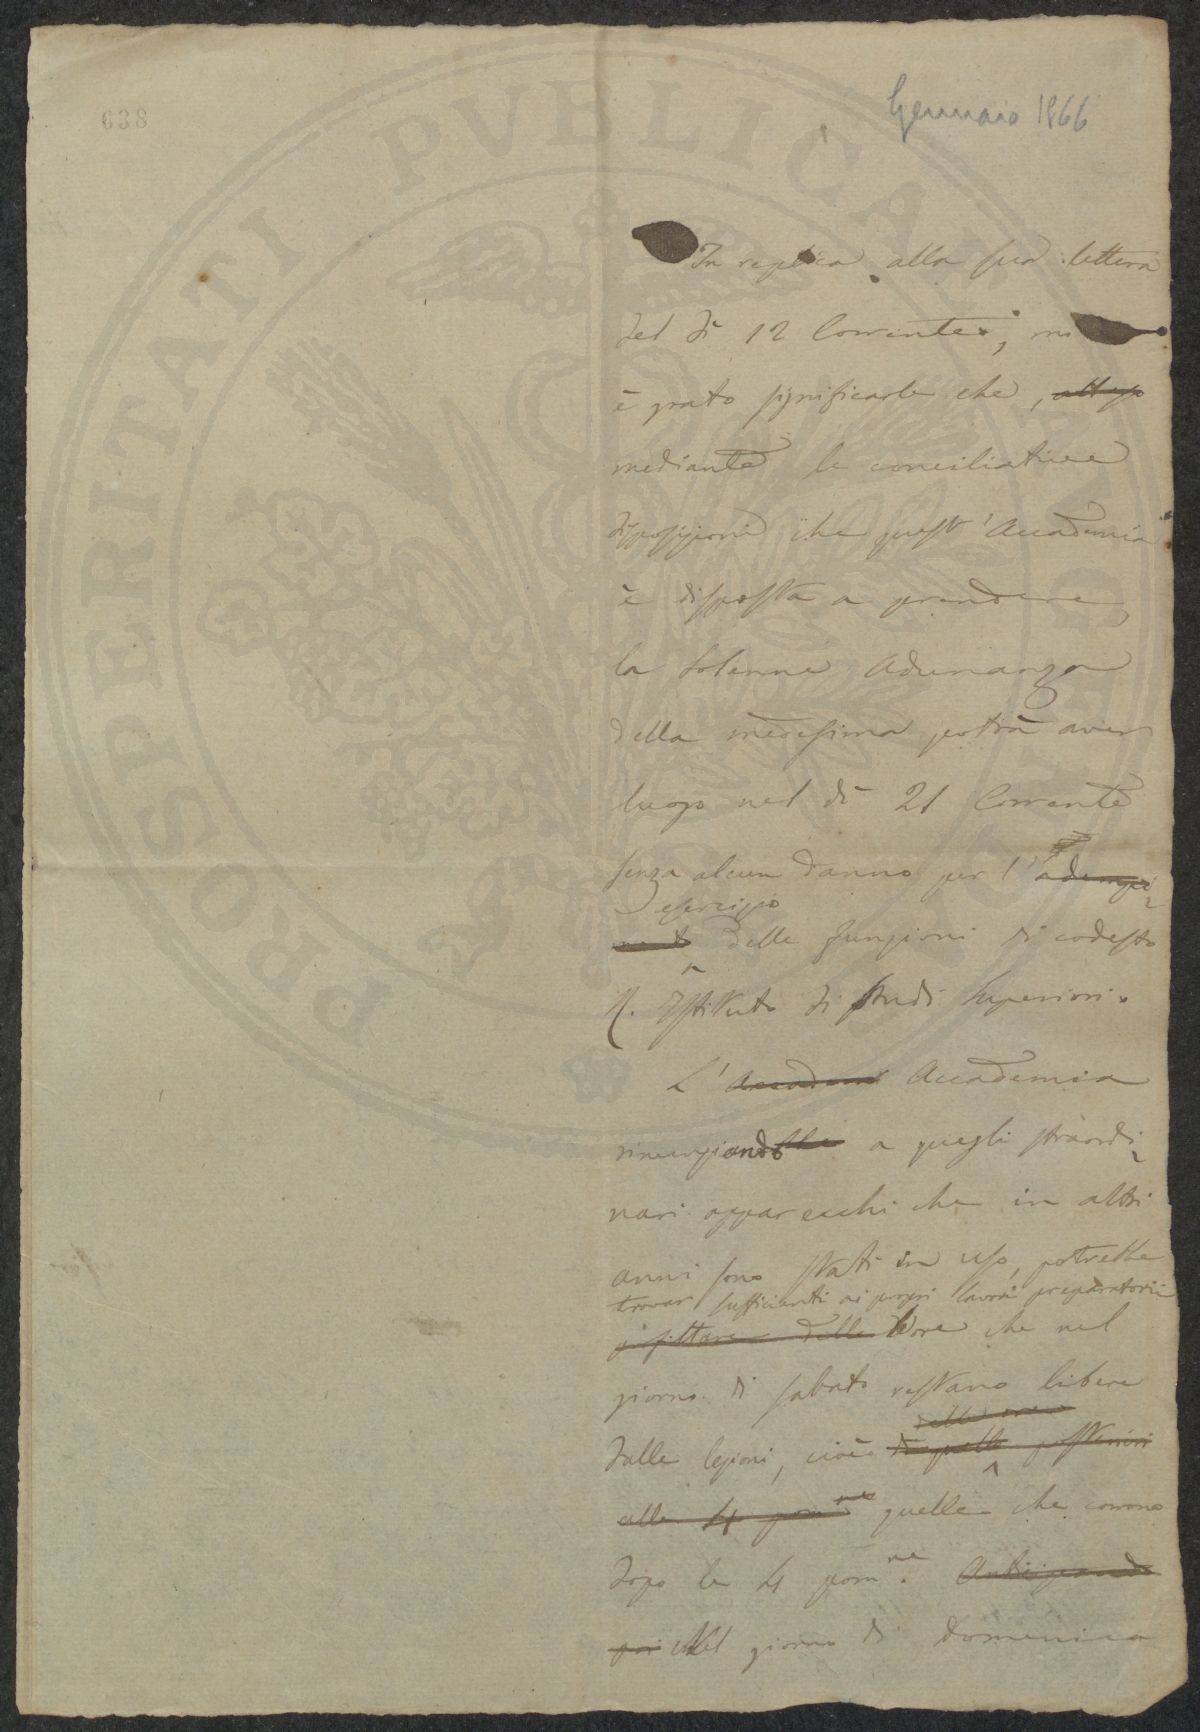 638
Gennaio 1866
PROSPERITATI PVBLICAE AVGENDAE
In replica alla sua lettera
del dì 12 Corrente, mi
è grato significarle che, atteso
mediante le conciliative
disposizioni che quest'Accademia
è disposta a prendere,
la solenne Adunanza
della medesima potrà aver
luogo nel dì 21 Corrente
senza alcun danno per l'adempi
esercizio
mento delle funzioni di codesto
R. Istituto di Studi Superiori.
L'Accademi Accademia
rinunziando a quegli straordi
nari apparecchi che in altri
anni sono stati in uso, potrebbe
trovar sufficienti ai propri lavori preparatorii
profittare delle ore che nel
giorno di sabato restano libere
delle ore
dalle lezioni, cioè di quelle posteriori
alle 4 pomne quelle che corrono
dopo le 4 pomne. Anticipando
poi Nel giorno di Domenica